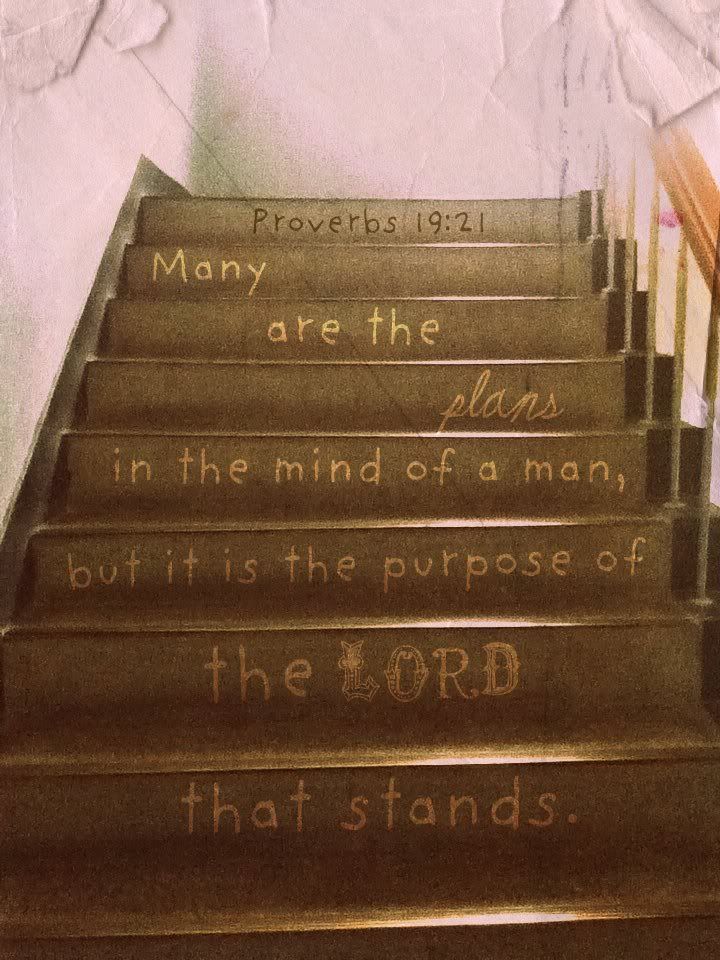 Proverbs 19:21
Many
are the
plans
in the mind of a man,
but it is the purpose of
the LORD
that stands.